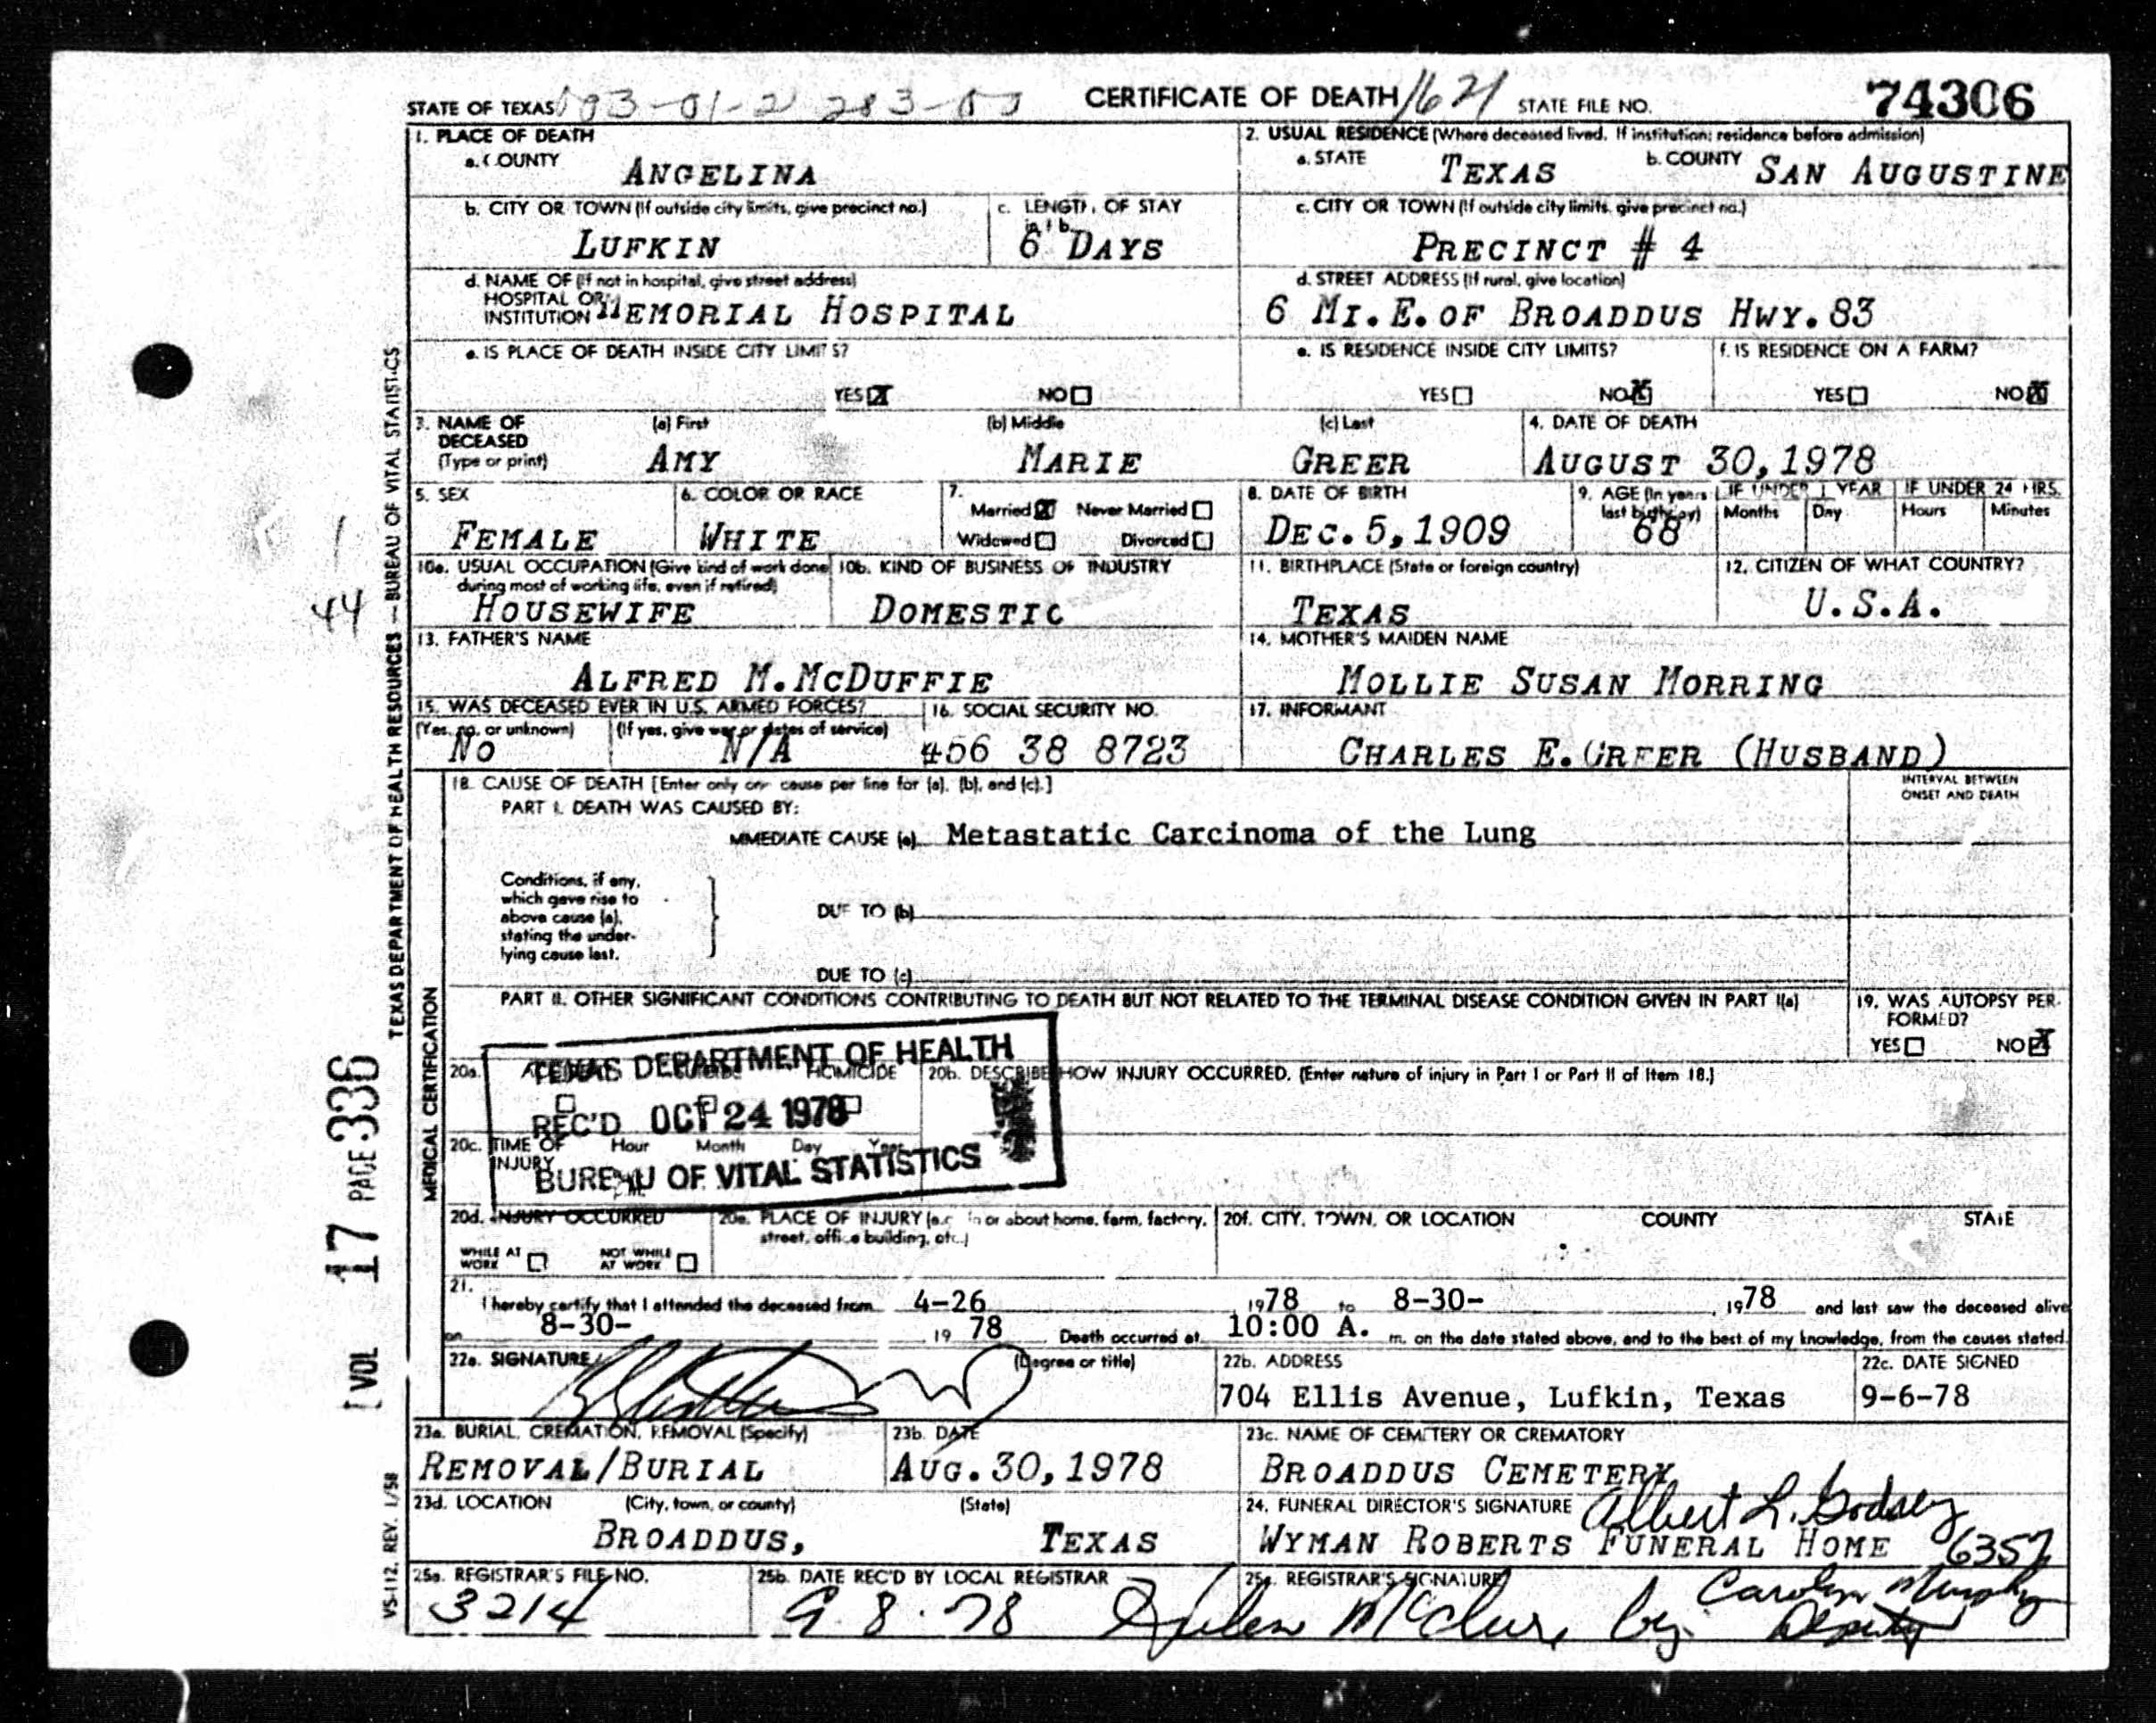 STATE OF TEXAS CERTIFICATE OF DEATH 1621 STATE FILE NO. 74306
1. PLACE OF DEATH
a. COUNTY
ANGELINA
2. USUAL RESIDENCE (Where deceased lived. If institution: residence before admission)
a. STATE TEXAS b. COUNTY SAN AUGUSTINE
b. CITY OR TOWN (If outside city limits, give precinct no.)
LUFKIN
c. LENGTH OF STAY
in 1 b.
6 DAYS
c. CITY OR TOWN (If outside city limits, give precinct no.)
PRECINCT # 4
d. NAME OF (If not in hospital, give street address)
HOSPITAL OR
INSTITUTION MEMORIAL HOSPITAL
d. STREET ADDRESS (If rural, give location)
6 MI. E. OF BROADDUS HWY. 83
e. IS PLACE OF DEATH INSIDE CITY LIMITS?
YES X NO
e. IS RESIDENCE INSIDE CITY LIMITS?
YES NO X
f. IS RESIDENCE ON A FARM?
YES NO X
3. NAME OF
DECEASED
(Type or print)
(a) First (b) Middle (c) Last
AMY MARIE GREER
4. DATE OF DEATH
AUGUST 30, 1978
5. SEX
FEMALE
6. COLOR OR RACE
WHITE
7.
Married X Never Married
Widowed Divorced
8. DATE OF BIRTH
DEC. 5, 1909
9. AGE (In years
last birthday)
68
IF UNDER 1 YEAR
Months Day
IF UNDER 24 HRS.
Hours Minutes
10a. USUAL OCCUPATION (Give kind of work done
during most of working life, even if retired)
HOUSEWIFE
10b. KIND OF BUSINESS OF INDUSTRY
DOMESTIC
11. BIRTHPLACE (State or foreign country)
TEXAS
12. CITIZEN OF WHAT COUNTRY?
U.S.A.
44
13. FATHER'S NAME
ALFRED M. MCDUFFIE
14. MOTHER'S MAIDEN NAME
MOLLIE SUSAN MORRING
15. WAS DECEASED EVER IN U.S. ARMED FORCES?
(Yes, no, or unknown) (If yes, give war or dates of service)
NO N/A
16. SOCIAL SECURITY NO.
456 38 8723
17. INFORMANT
CHARLES E. GREER (HUSBAND)
18. CAUSE OF DEATH [Enter only one cause per line for (a), (b), and (c).]
INTERVAL BETWEEN
ONSET AND DEATH
PART I. DEATH WAS CAUSED BY:
IMMEDIATE CAUSE (a) Metastatic Carcinoma of the Lung
Conditions, if any,
which gave rise to
above cause (a),
stating the under-
lying cause last.
DUE TO (b)
DUE TO (c)
PART II. OTHER SIGNIFICANT CONDITIONS CONTRIBUTING TO DEATH BUT NOT RELATED TO THE TERMINAL DISEASE CONDITION GIVEN IN PART I(a)
19. WAS AUTOPSY PER-
FORMED?
YES NO X
TEXAS DEPARTMENT OF HEALTH
REC'D OCT 24 1978
BUREAU OF VITAL STATISTICS
20a. HOMICIDE
20b. DESCRIBE HOW INJURY OCCURRED. (Enter nature of injury in Part I or Part II of Item 18.)
20c. TIME OF
INJURY
Hour Month Day Year
20d. INJURY OCCURRED
WHILE AT
WORK
NOT WHILE
AT WORK
20e. PLACE OF INJURY (e.g. in or about home, farm, factory,
street, office building, etc.)
20f. CITY, TOWN, OR LOCATION COUNTY STATE
21.
I hereby certify that I attended the deceased from 4-26 1978 to 8-30- , 1978 and last saw the deceased alive
on 8-30- , 19 78 . Death occurred at 10:00 A. m. on the date stated above, and to the best of my knowledge, from the causes stated.
22a. SIGNATURE (Degree or title)
22b. ADDRESS
704 Ellis Avenue, Lufkin, Texas
22c. DATE SIGNED
9-6-78
23a. BURIAL, CREMATION, REMOVAL (Specify)
REMOVAL/BURIAL
23b. DATE
AUG. 30, 1978
23c. NAME OF CEMETERY OR CREMATORY
BROADDUS CEMETERY
23d. LOCATION (City, town, or county) (State)
BROADDUS, TEXAS
24. FUNERAL DIRECTOR'S SIGNATURE Albert L. Godsey
WYMAN ROBERTS FUNERAL HOME 6357
25a. REGISTRAR'S FILE NO.
3214
25b. DATE REC'D BY LOCAL REGISTRAR
9.8.78
25c. REGISTRAR'S SIGNATURE
Helen McClure, by Carolyn Murphy
Deputy
TEXAS DEPARTMENT OF HEALTH RESOURCES — BUREAU OF VITAL STATISTICS
MEDICAL CERTIFICATION
VOL 17 PAGE 336
VS-112 REV. 1/58